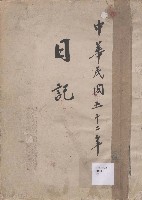 中華民國五十二年
日記